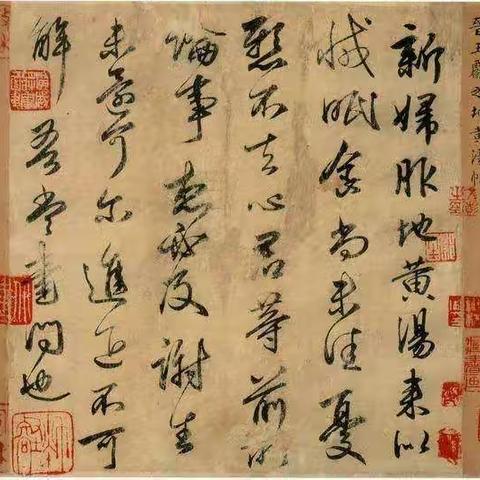 晉王獻之地黃湯帖
新婦服地黃湯來似
減眠食尚未佳憂
懸不去心君等前所
論事想必及謝生
未還可爾進退不可
解吾當書問也